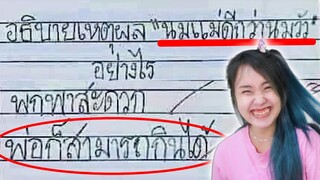 อธิบายเหตุผล "นมแม่ดีกว่านมวัว"
อย่างไร
พกพาสะดวก
พ่อก็สามารถกินได้